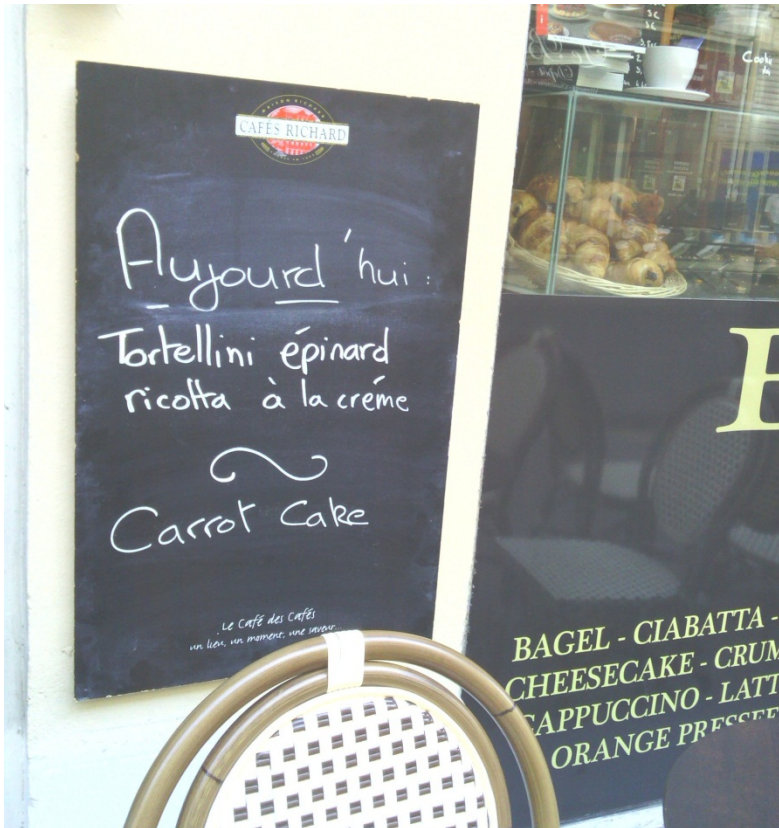 CAFÉS RICHARD
Aujourd'hui :
Tortellini épinard
ricotta à la créme
Carrot Cake
Le Café des Cafés
un lieu, un moment, une saveur...
BAGEL - CIABATTA -
CHEESECAKE - CRUM
CAPPUCCINO - LATT
ORANGE PRESSE